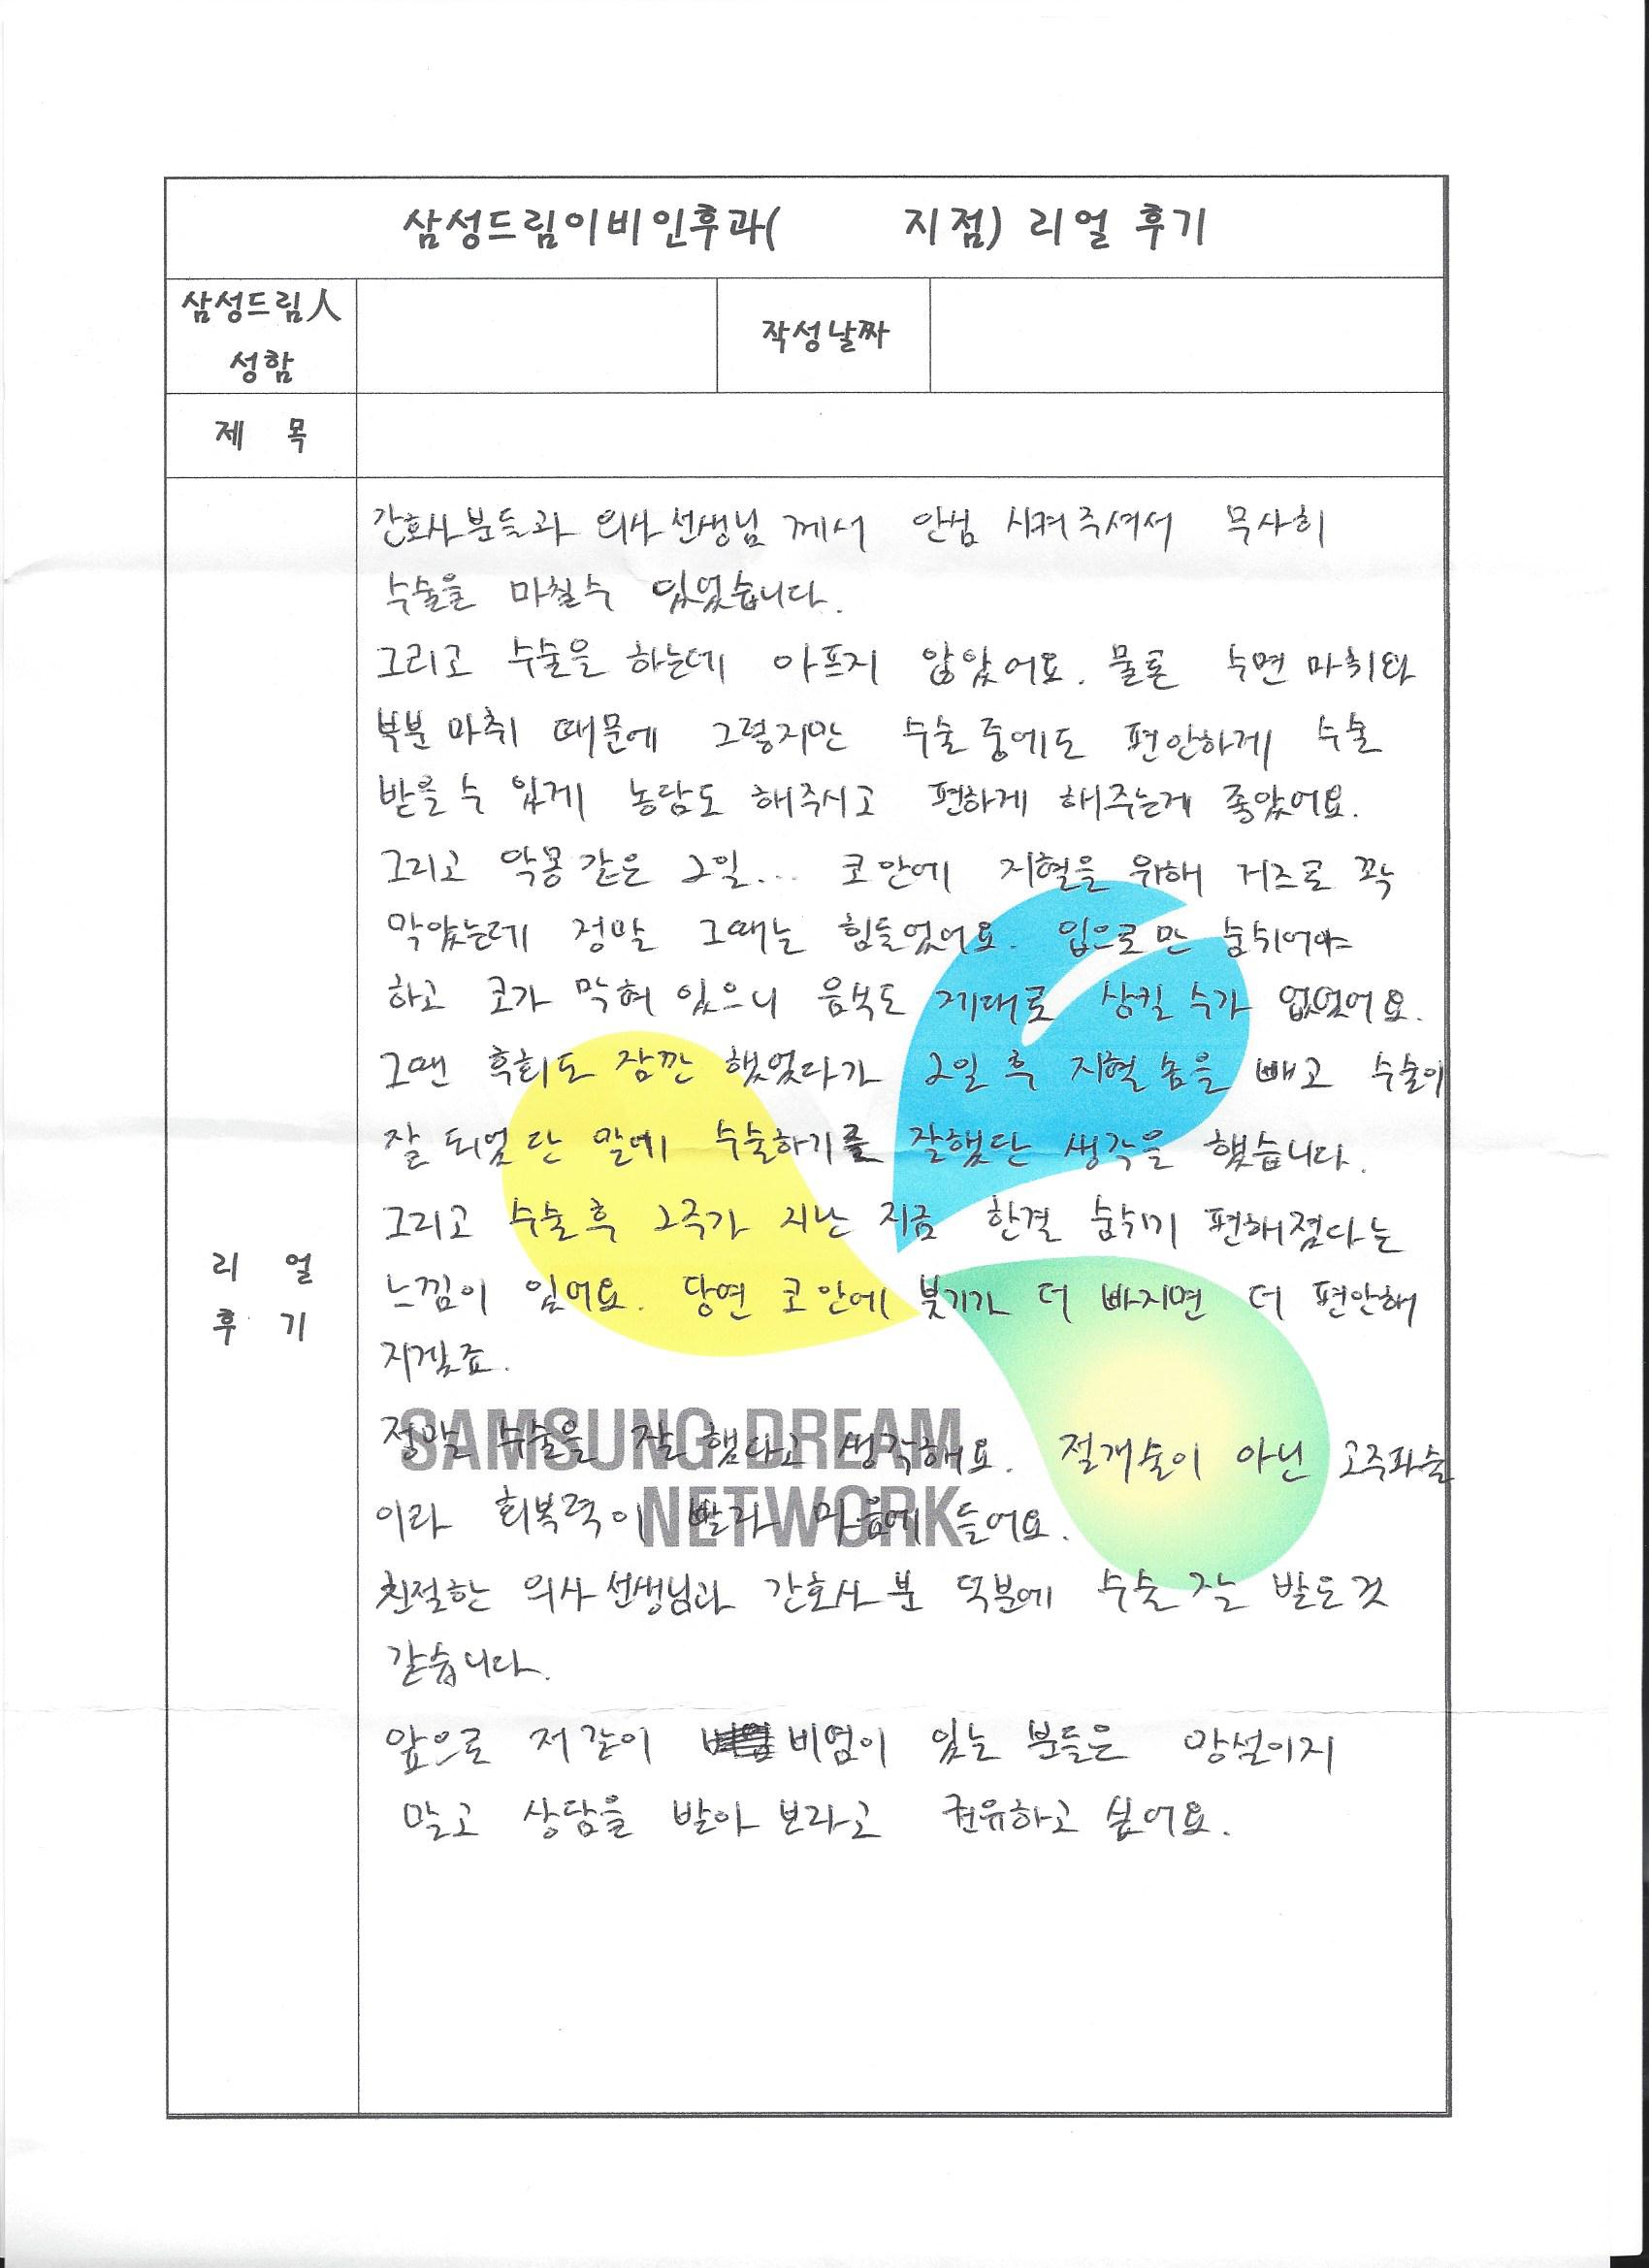 삼성드림이비인후과(          지점) 리얼 후기
삼성드림人
성함
작성날짜
제 목
리 얼
후 기
간호사분들과 의사선생님 께서 안심 시켜주셔서 무사히
수술을 마칠수 있었습니다.
그리고 수술을 하는데 아프지 않았어요. 물론 수면마취와
부분마취 때문에 그렇지만 수술중에도 편안하게 수술
받을수 있게 농담도 해주시고 편하게 해주는게 좋았어요.
그리고 악몽같은 2일... 코안에 지혈을 위해 거즈로 꽉
막았는데 정말 그때는 힘들었어요. 입으로만 숨쉬어야
하고 코가 막혀 있으니 음식도 제대로 삼킬수가 없었어요.
그땐 후회도 잠깐 했었다가 2일후 지혈솜을 빼고 수술이
잘 되었단 말에 수술하기를 잘했단 생각을 했습니다.
그리고 수술후 2주가 지난 지금 한결 숨쉬기 편해졌다는
느낌이 있어요. 당연 코안에 붓기가 더 빠지면 더 편안해
지겠죠.
정말 수술을 잘 했다고 생각해요. 절개술이 아닌 고주파술
이라 회복력이 빨라 마음에 들어요.
친절한 의사선생님과 간호사분 덕분에 수술 잘 받은것
같습니다.
앞으로 저같이 비염이 있는 분들은 망설이지
말고 상담을 받아 보라고 권유하고 싶어요.
SAMSUNG DREAM
NETWORK